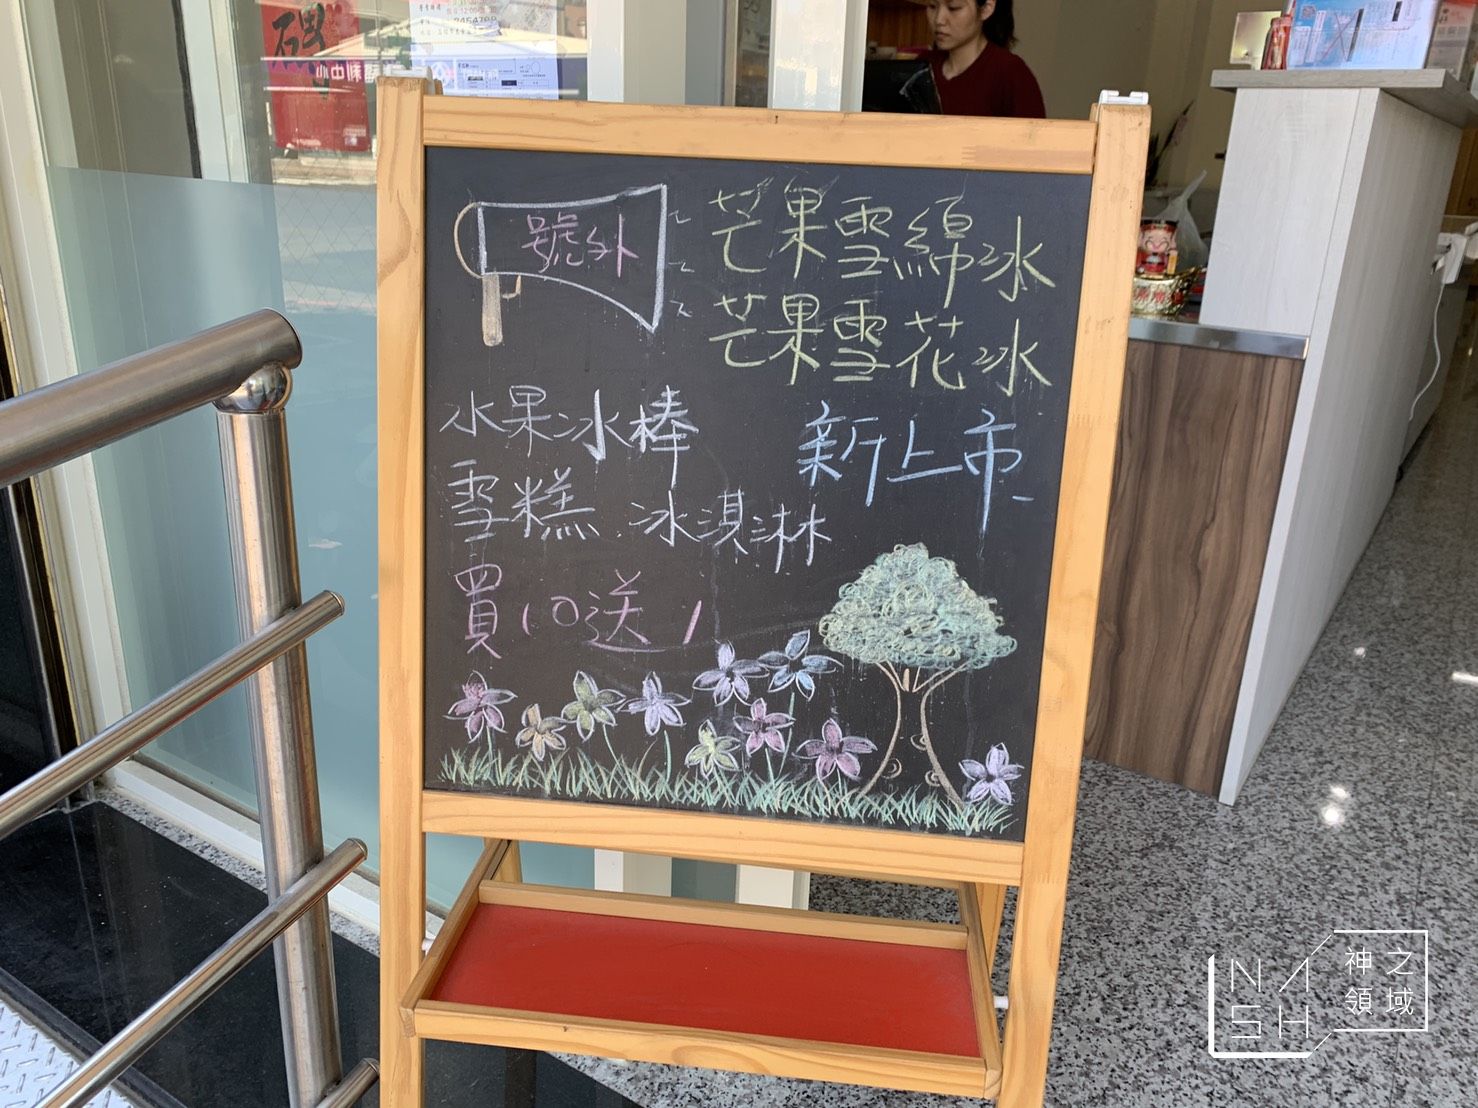 號外
芒果雪綿冰
芒果雪花冰
水果冰棒
新上市
雪糕、冰淇淋
買10送1
利中心
NASH
神之
領域